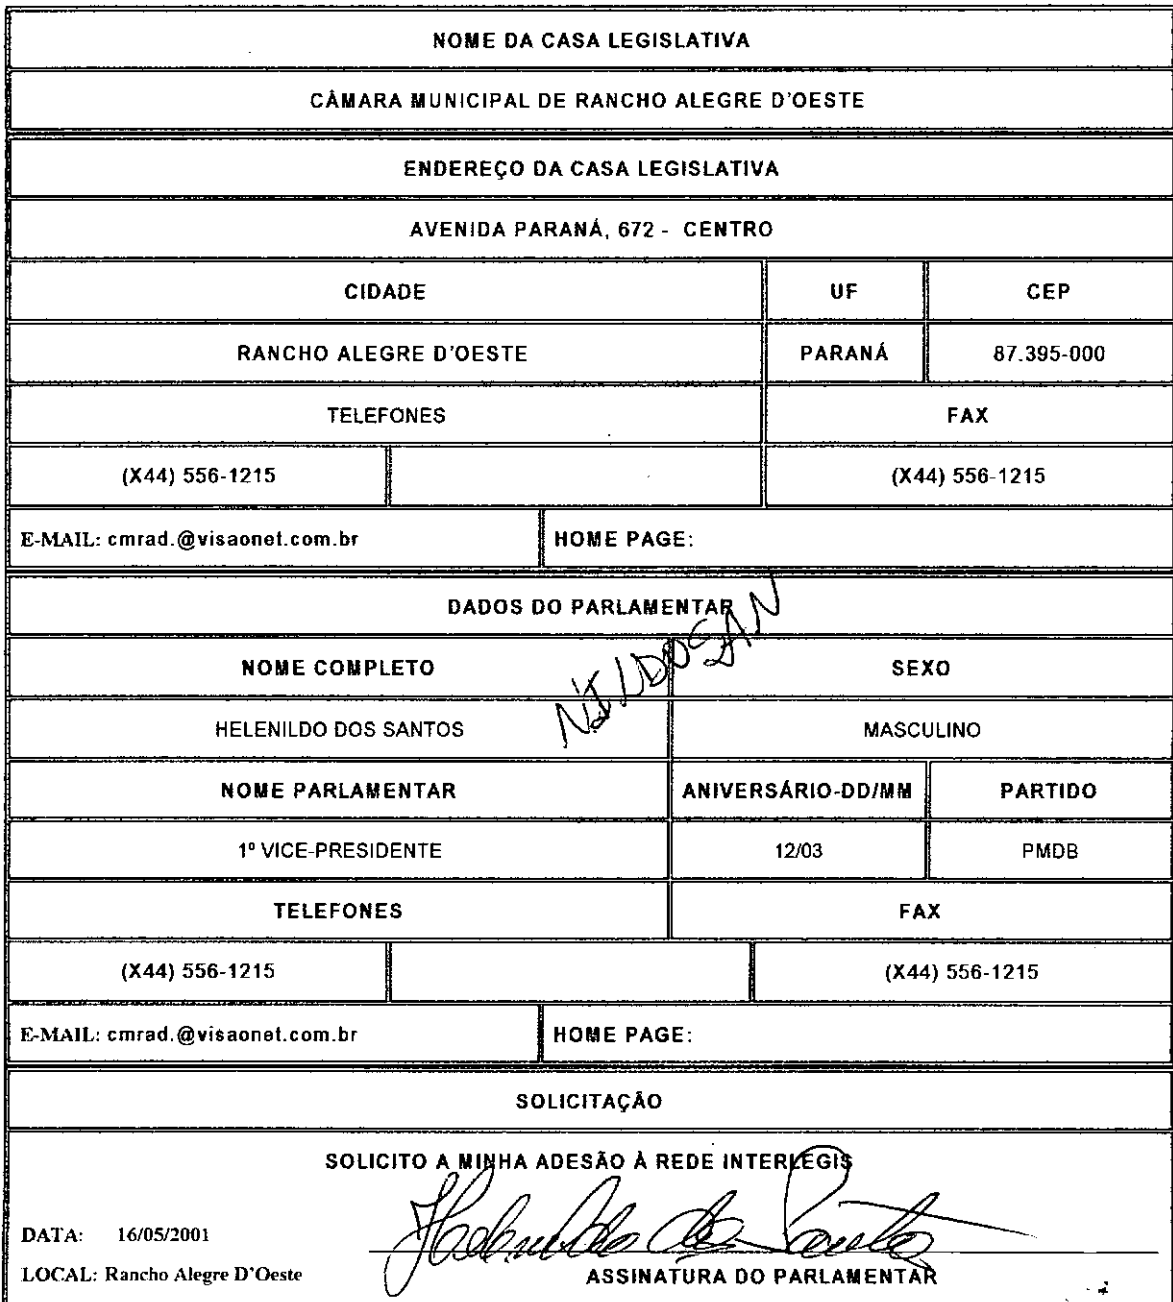 NOME DA CASA LEGISLATIVA
CÂMARA MUNICIPAL DE RANCHO ALEGRE D'OESTE
ENDEREÇO DA CASA LEGISLATIVA
AVENIDA PARANÁ, 672 - CENTRO
CIDADE UF CEP
RANCHO ALEGRE D'OESTE PARANÁ 87.395-000
TELEFONES FAX
(X44) 556-1215 (X44) 556-1215
E-MAIL: cmrad.@visaonet.com.br HOME PAGE:
DADOS DO PARLAMENTAR
NOME COMPLETO SEXO
HELENILDO DOS SANTOS MASCULINO
NOME PARLAMENTAR ANIVERSÁRIO-DD/MM PARTIDO
1º VICE-PRESIDENTE 12/03 PMDB
TELEFONES FAX
(X44) 556-1215 (X44) 556-1215
E-MAIL: cmrad.@visaonet.com.br HOME PAGE:
SOLICITAÇÃO
SOLICITO A MINHA ADESÃO À REDE INTERLEGIS
DATA: 16/05/2001
LOCAL: Rancho Alegre D'Oeste ASSINATURA DO PARLAMENTAR